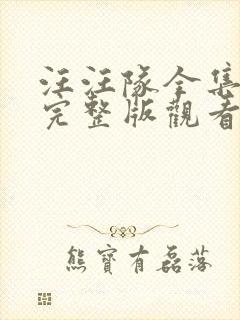 汪汪隊全集
完整版觀看
熊寶有磊落